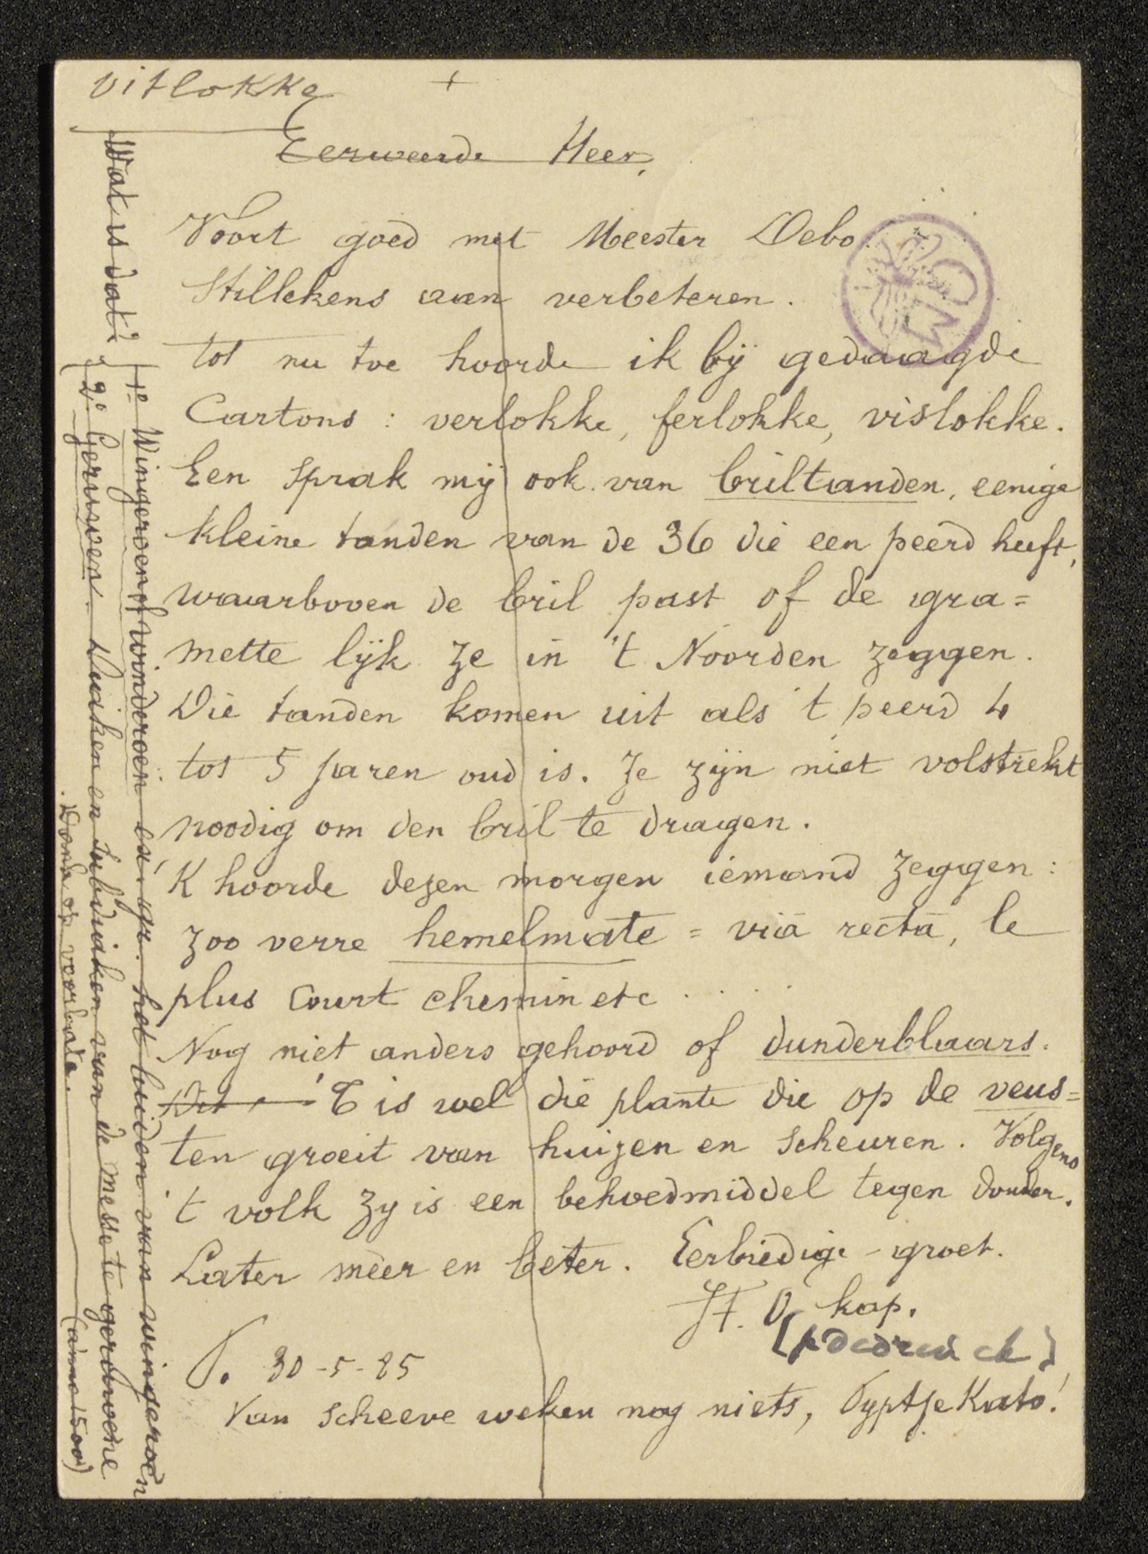 vitlokke +
Eerweerde Heer,
Voort goed met Meester Debo.
Stillekens aan verbeteren.
tot nu toe hoorde ik bij gedaagde
Cartons : verlokke, ferlokke, vislokke.
Een sprak mij ook van briltanden, eenige
kleine tanden van de 36 die een peerd heeft,
waarboven de bril past of de gra=
mette lijk ze in 't Noorden zeggen.
Die tanden komen uit als 't peerd 4
tot 5 jaren oud is. Ze zijn niet volstrekt
noodig om den bril te dragen.
'K hoorde dezen morgen iemand zeggen :
zoo verre hemelmate = via recta, le
plus court chemin etc . . . .
Nog niet anders gehoord of dunderblaars.
'T is wel die plante die op de veus=
ten groeit van huizen en scheuren. Volgens
't volk zy is een behoedmiddel tegen donder.
Later meer en beter. Eerbiedige groet.
H. D. kap.
P. 30-5-85
Van scheeve weken nog niets, Pyptje Kato!
Wat is dat?
1º Wingeroen of winderoen en gr. het luiden van wingeroen
2º Geruwen. Duiken en subduiken van de messe te geruwene
Dank op voorbate. (anno 1500)